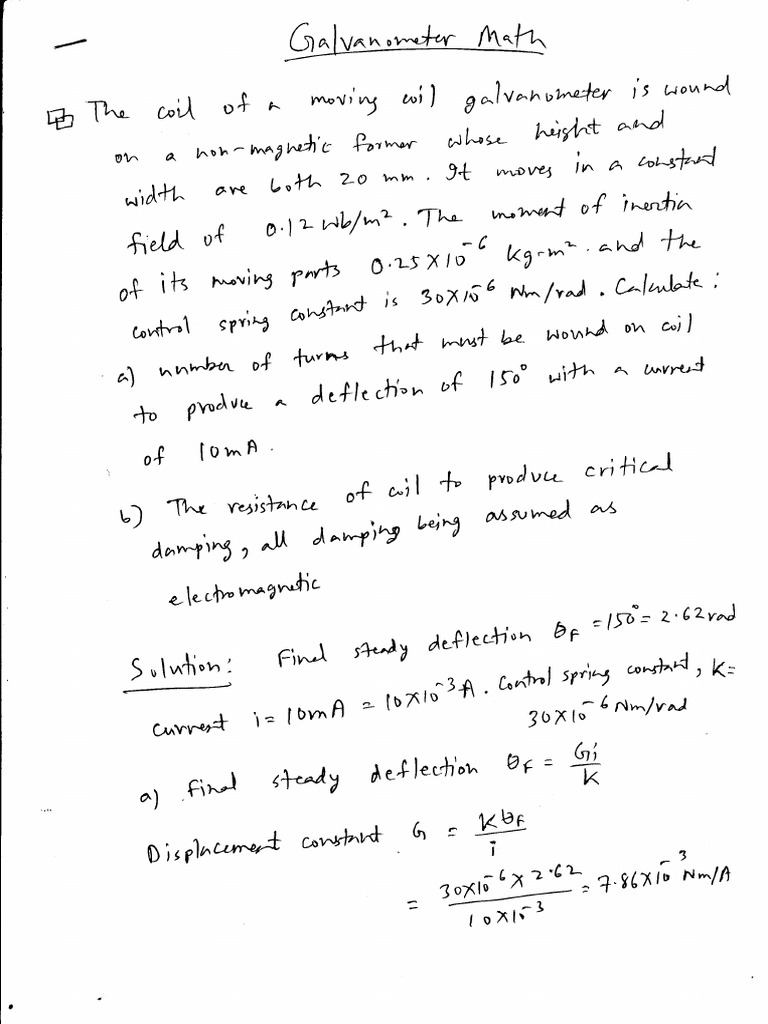 Galvanometer Math
The coil of a moving coil galvanometer is wound
on a non-magnetic former whose height and
width are both 20 mm. It moves in a constant
field of 0.12 wb/m². The moment of inertia
of its moving parts 0.25×10⁻⁶ kg-m². and the
control spring constant is 30×10⁻⁶ Nm/rad. Calculate:
a) number of turns that must be wound on coil
to produce a deflection of 150° with a current
of 10mA.
b) The resistance of coil to produce critical
damping, all damping being assumed as
electromagnetic
Solution: Final steady deflection θF = 150° = 2.62rad
current i = 10mA = 10×10⁻³A. Control spring constant, K=
30×10⁻⁶ Nm/rad
a) final steady deflection θF = Gi/K
Displacement constant G = KθF/i
= 30×10⁻⁶×2.62/10×10⁻³ = 7.86×10⁻³ Nm/A